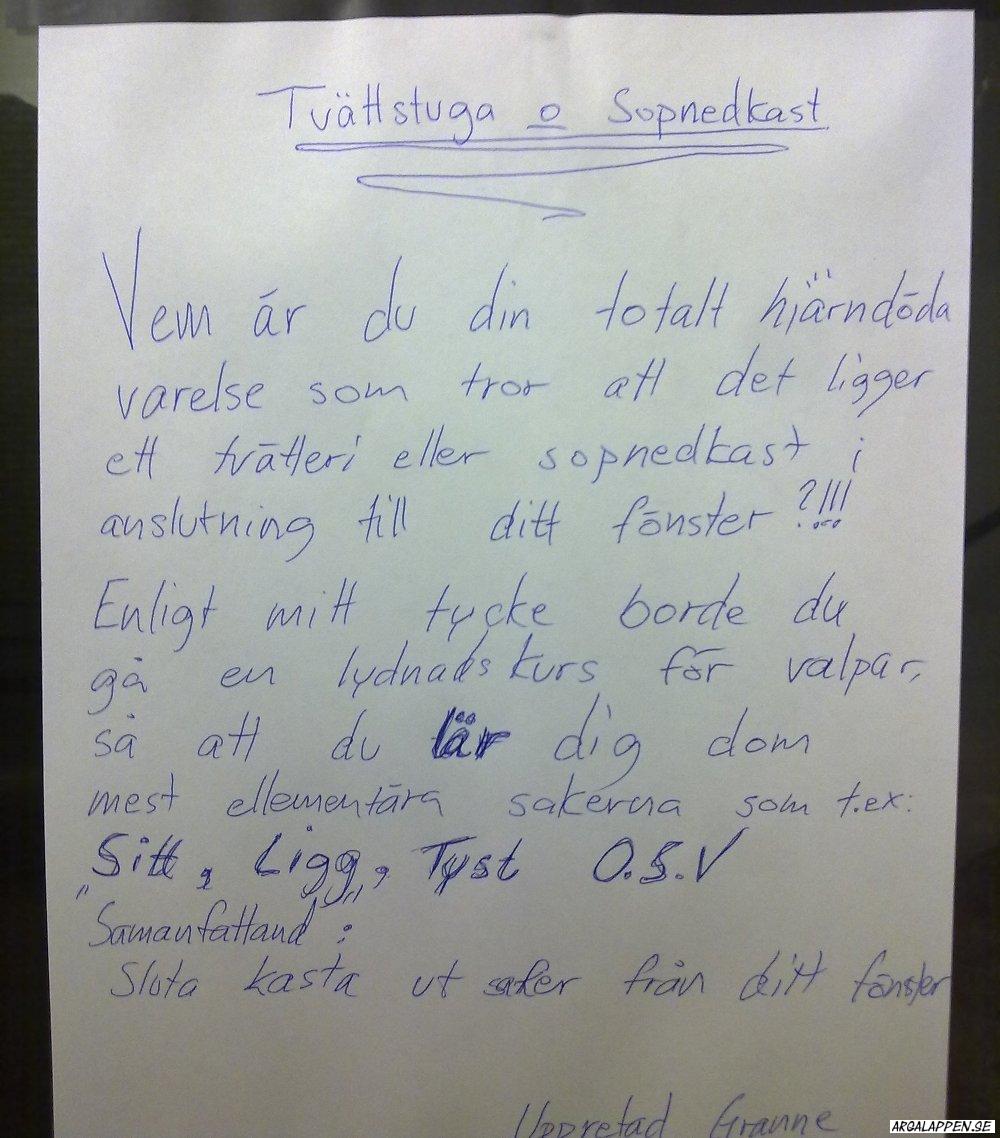 Tvättstuga o Sopnedkast
Vem är du din totalt hjärndöda
varelse som tror att det ligger
ett tvätteri eller sopnedkast i
anslutning till ditt fönster?!!!
Enligt mitt tycke borde du
gå en lydnads kurs för valpar,
så att du lär dig dom
mest ellementära sakerna som t.ex:
Sitt, Ligg, Tyst O.S.V
"Samanfattand":
Sluta kasta ut saker från ditt fönster
Uppretad Granne
ARGALAPPEN.SE